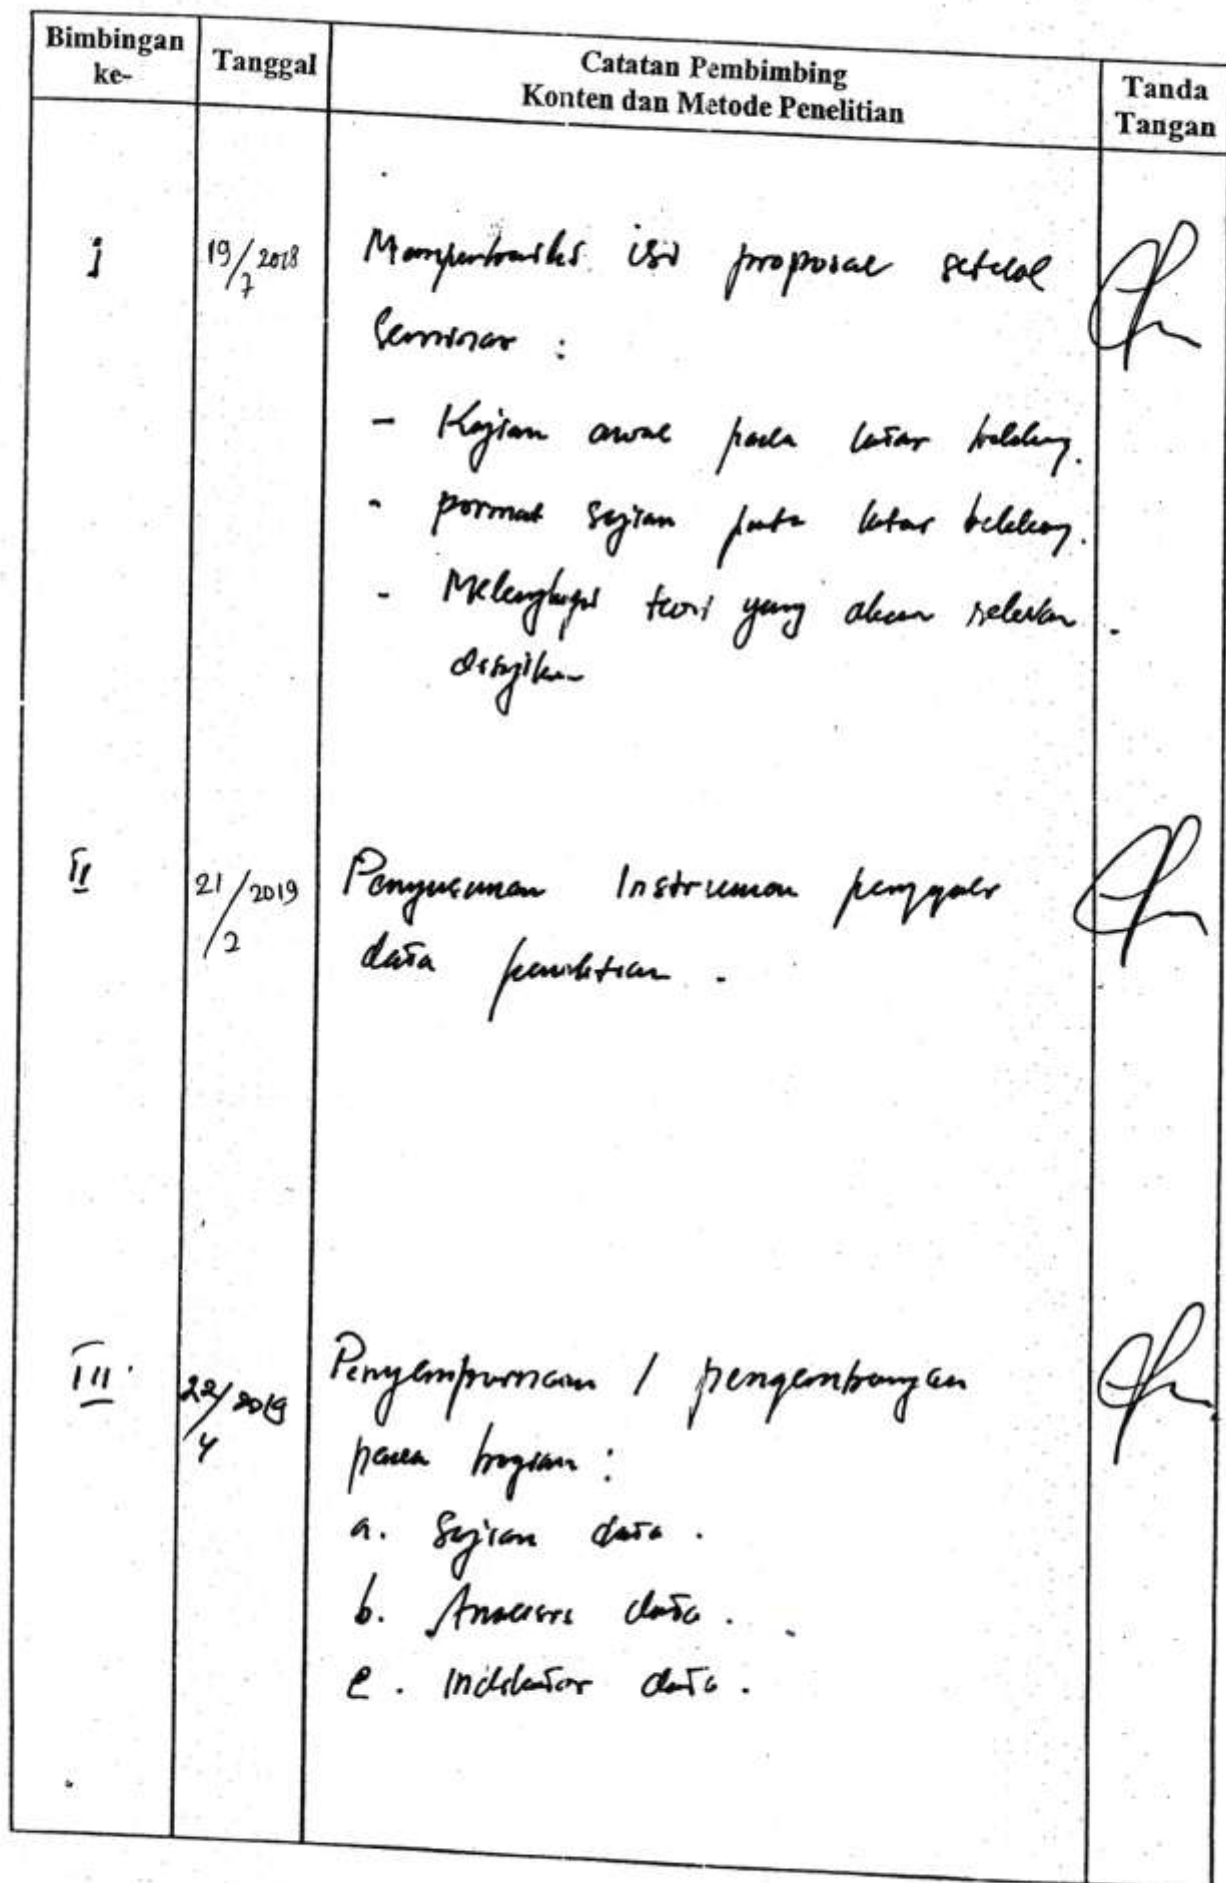 Bimbingan ke-
Tanggal
Catatan Pembimbing
Konten dan Metode Penelitian
Tanda Tangan
I
19/7 2018
Memperbaiki isi proposal setelah
Seminar :
- Kajian awal pada latar belakang.
- pormat sajian pada latar belakang.
- Melengkapi teori yang akan relevan
disajikan
II
21/2 2019
Penyusunan Instrumen penggali
data penelitian.
III
22/4 2019
Penyempurnaan / pengembangan
pada bagian :
a. Sajian data.
b. Analisis data.
c. Indikator data.